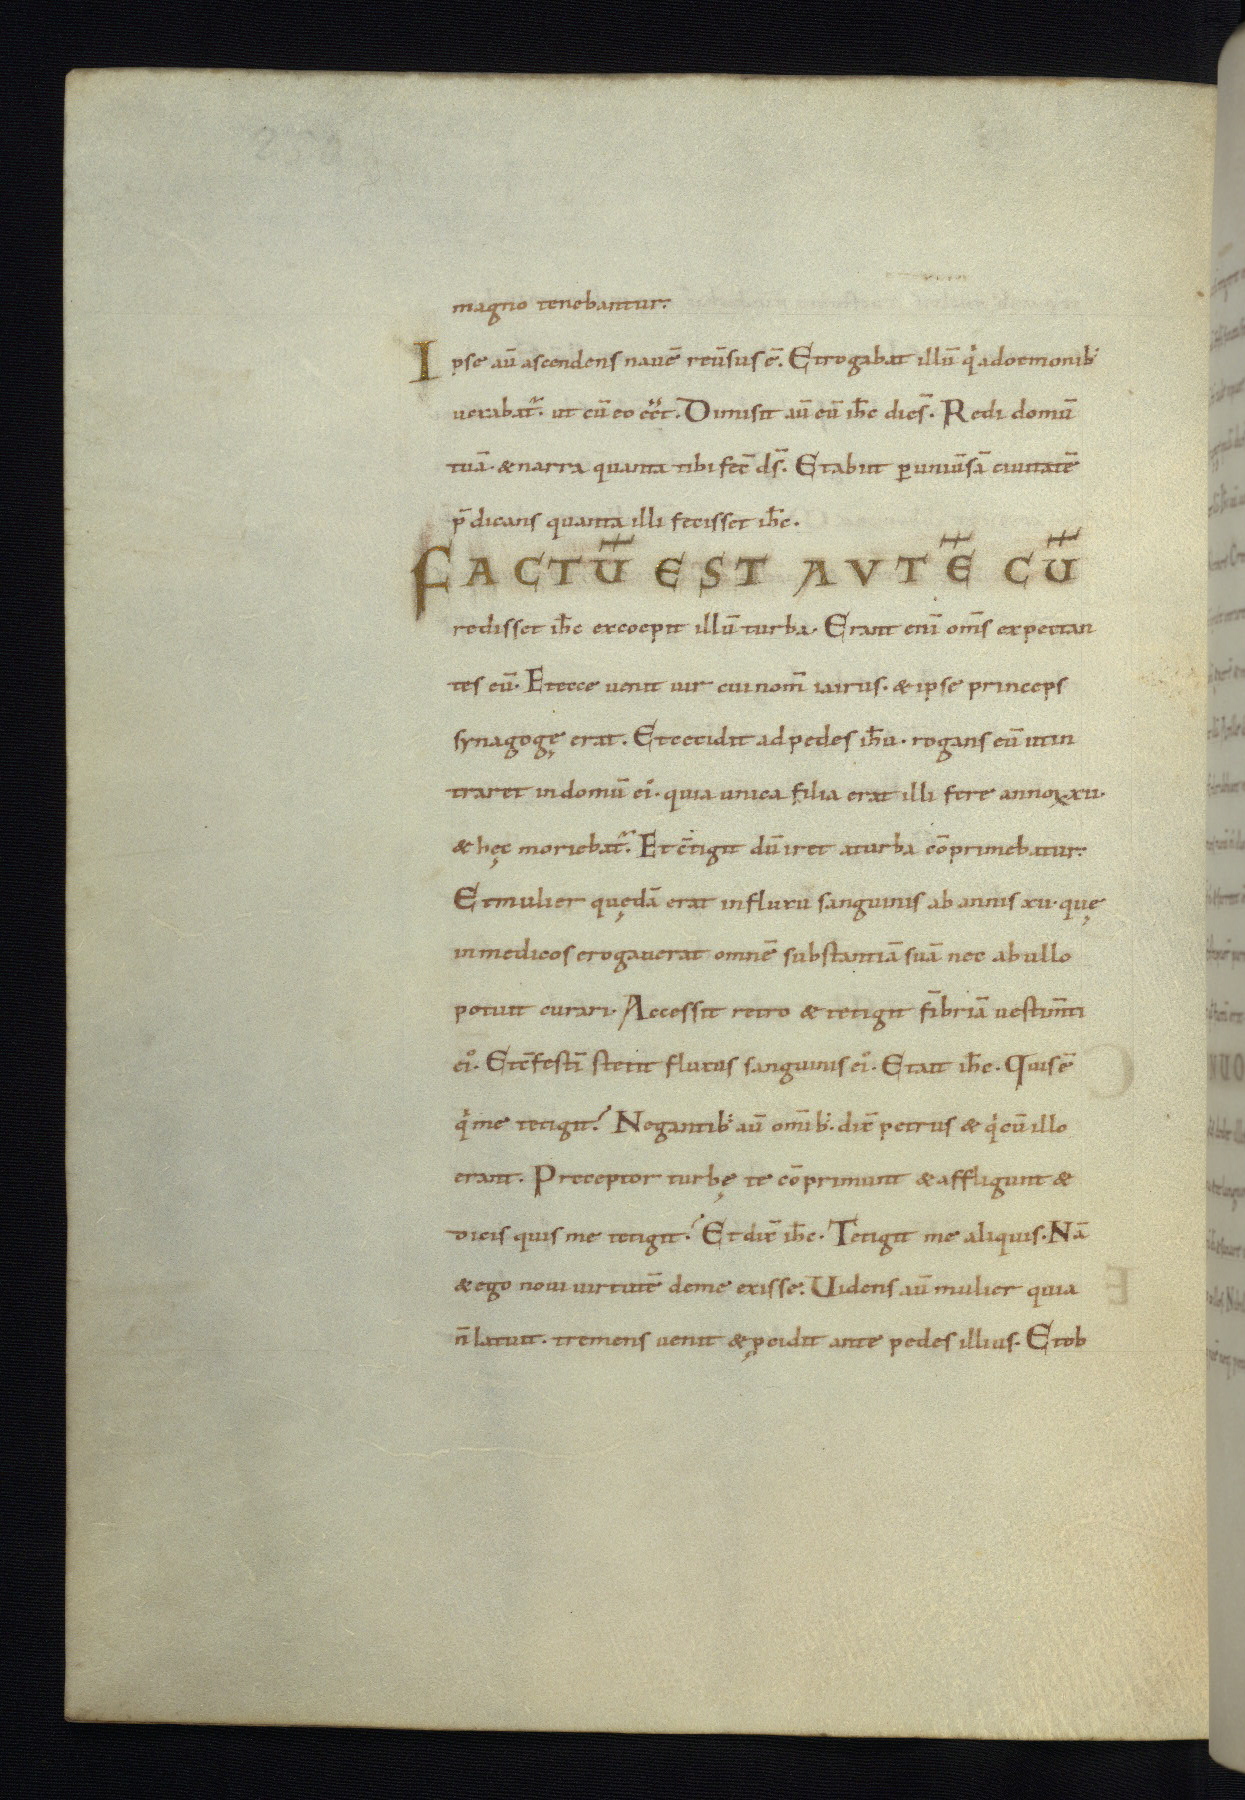 magno tenebantur.
Ipse aū ascendens nauē reūsus ē. Et rogabat illū q̇ a doemonib;
uexabat᷑. ut cū eo eēt. Dimisit aū eū ih̄c dices̄. Redi domū
tuā. & narra quanta tibi fec̄ ds̄. Et abiit p uniūsā ciuitatē
p̄dicans quanta illi fecisset ih̄c.
FACTŪ EST AVTĒ CŪ
redisset ih̄c excoepit illū turba. Erant eni᷑ om̄s expectan
tes eū. Et ecce uenit uir cui nom̄ iairus. & ipse princeps
synagogę erat. Et cecidit ad pedes ih̄u. rogans eū ut in
traret in domū ei᷒. quia unica filia erat illi fere annoꝝ xii.
& hęc moriebat᷑. Et c̄tigit dū iret a turba cōprimebatur.
Et mulier quędā erat in fluxu sanguinis ab annis xii. quę
in medicos erogauerat omnē substantiā suā nec ab ullo
potuit curari. Accessit retro & tetigit fi᷑briā uestim̄ti
ei᷒. Et c̄festi᷑ stetit fluxus sanguinis ei᷒. Et ait ih̄c. Quis ē
q̇ me tetigit? Negantib; aū om̄ib;. dix̄ petrus & q̇ cū illo
erant. Preceptor turbę te cōprimunt & affligunt &
dicis quis me tetigit? Et dix̄ ih̄c. Tetigit me aliquis. Nā
& ego noui uirtutē de me exisse. Uidens aū mulier quia
n̄ latuit. tremens uenit & p̨cidit ante pedes illius. Et ob